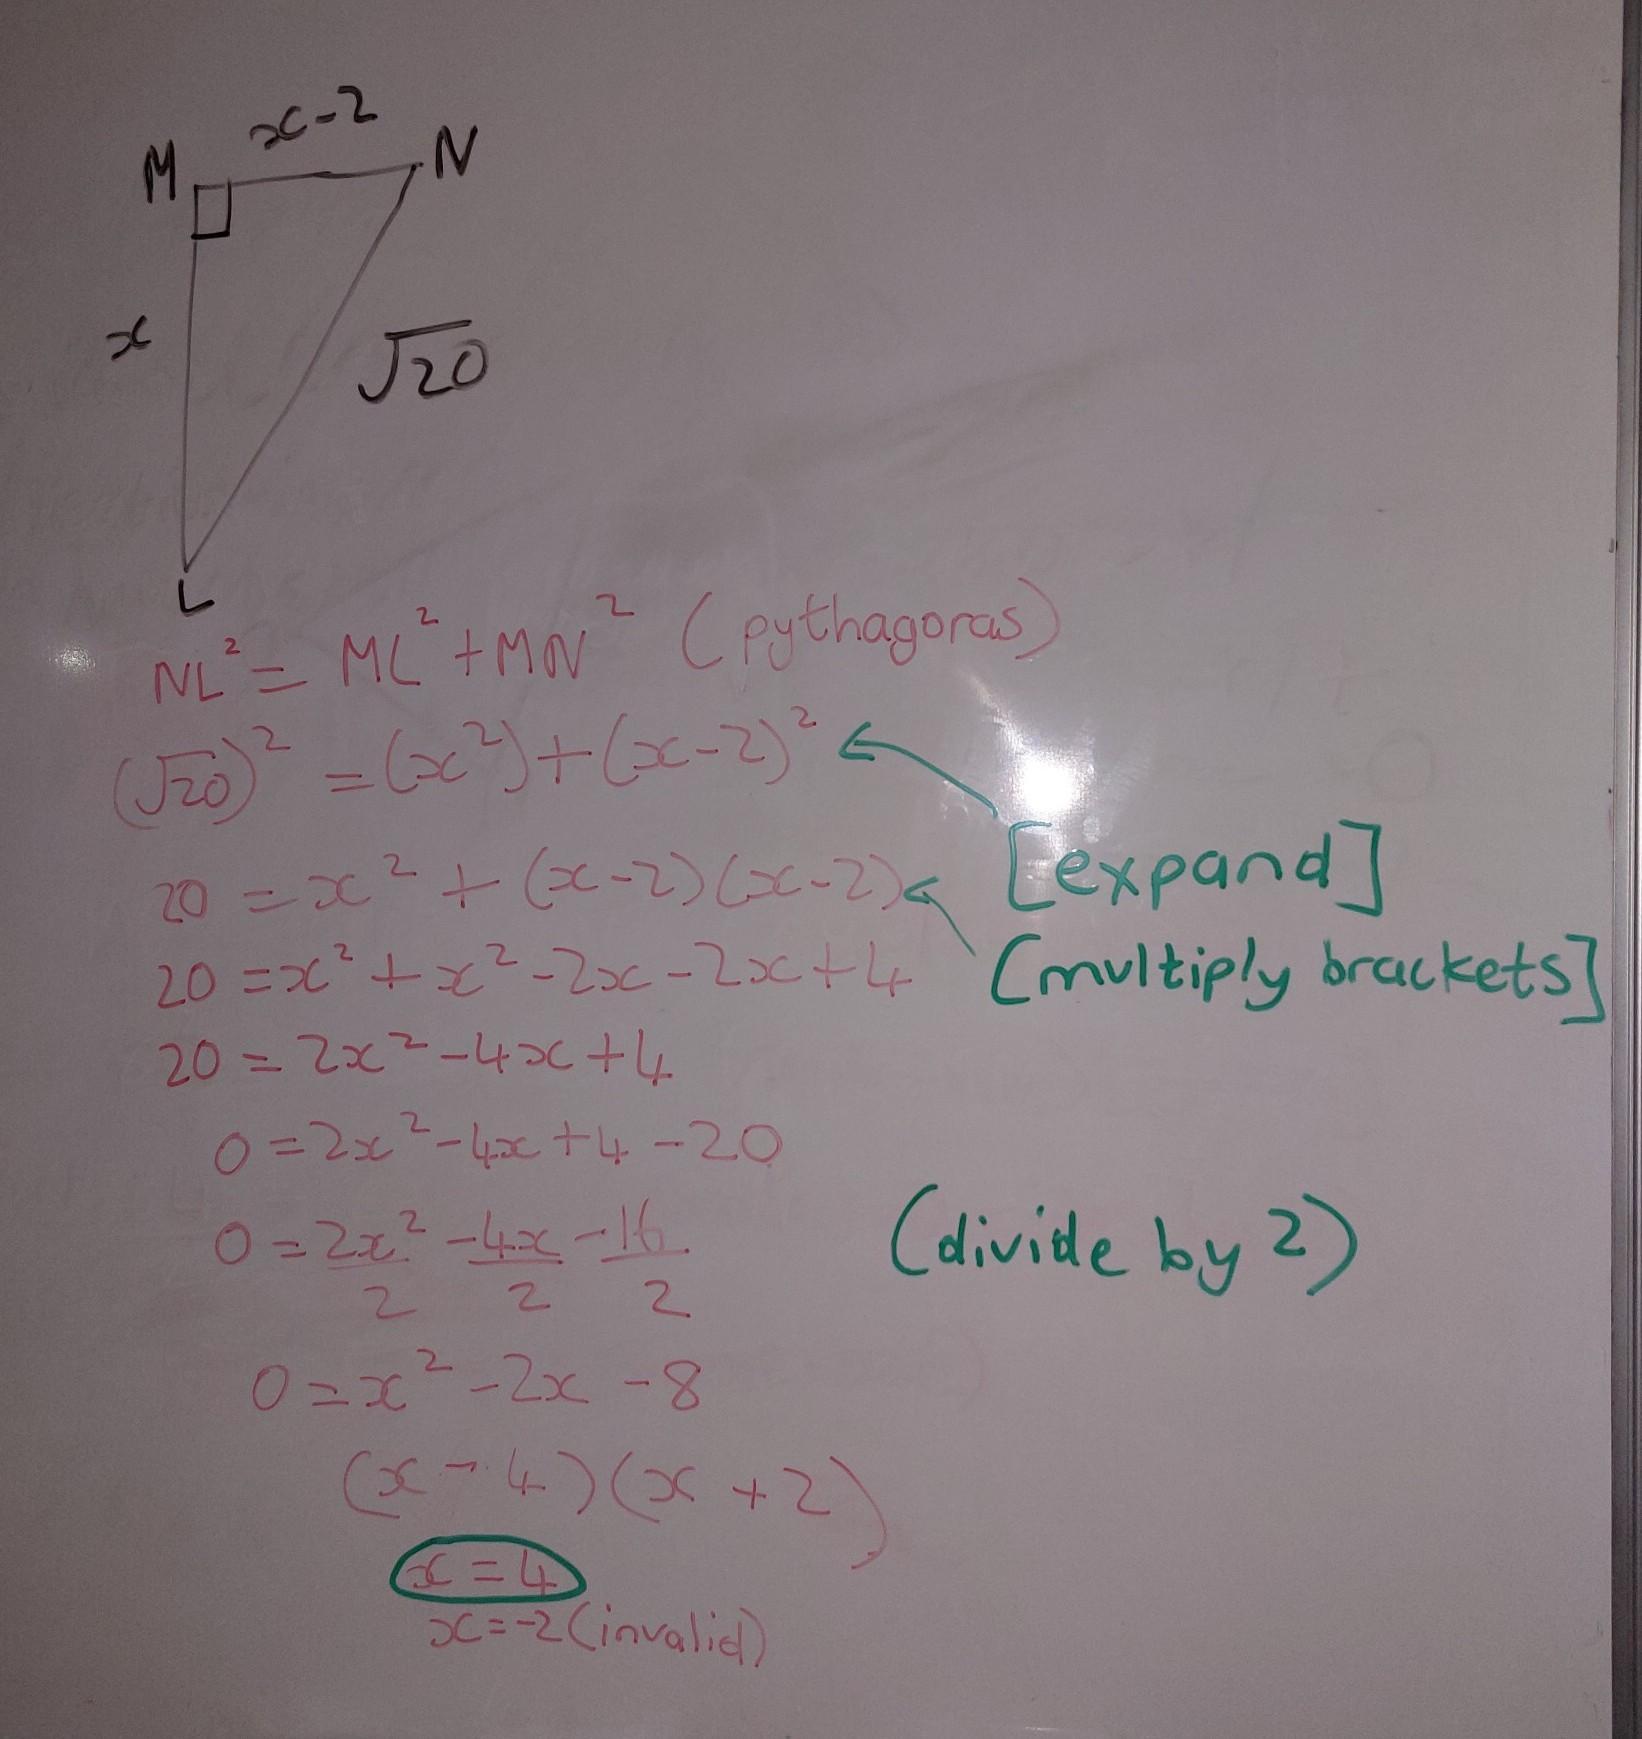 x-2
M
N
x
√20
L
NL² = ML² + MN² (pythagoras)
(√20)² = (x²) + (x-2)²
[expand]
20 = x² + (x-2)(x-2)
[multiply brackets]
20 = x² + x² - 2x - 2x + 4
20 = 2x² - 4x + 4
0 = 2x² - 4x + 4 - 20
0 = 2x²/2 - 4x/2 - 16/2 (divide by 2)
0 = x² - 2x - 8
(x - 4)(x + 2)
x = 4
x = -2 (invalid)